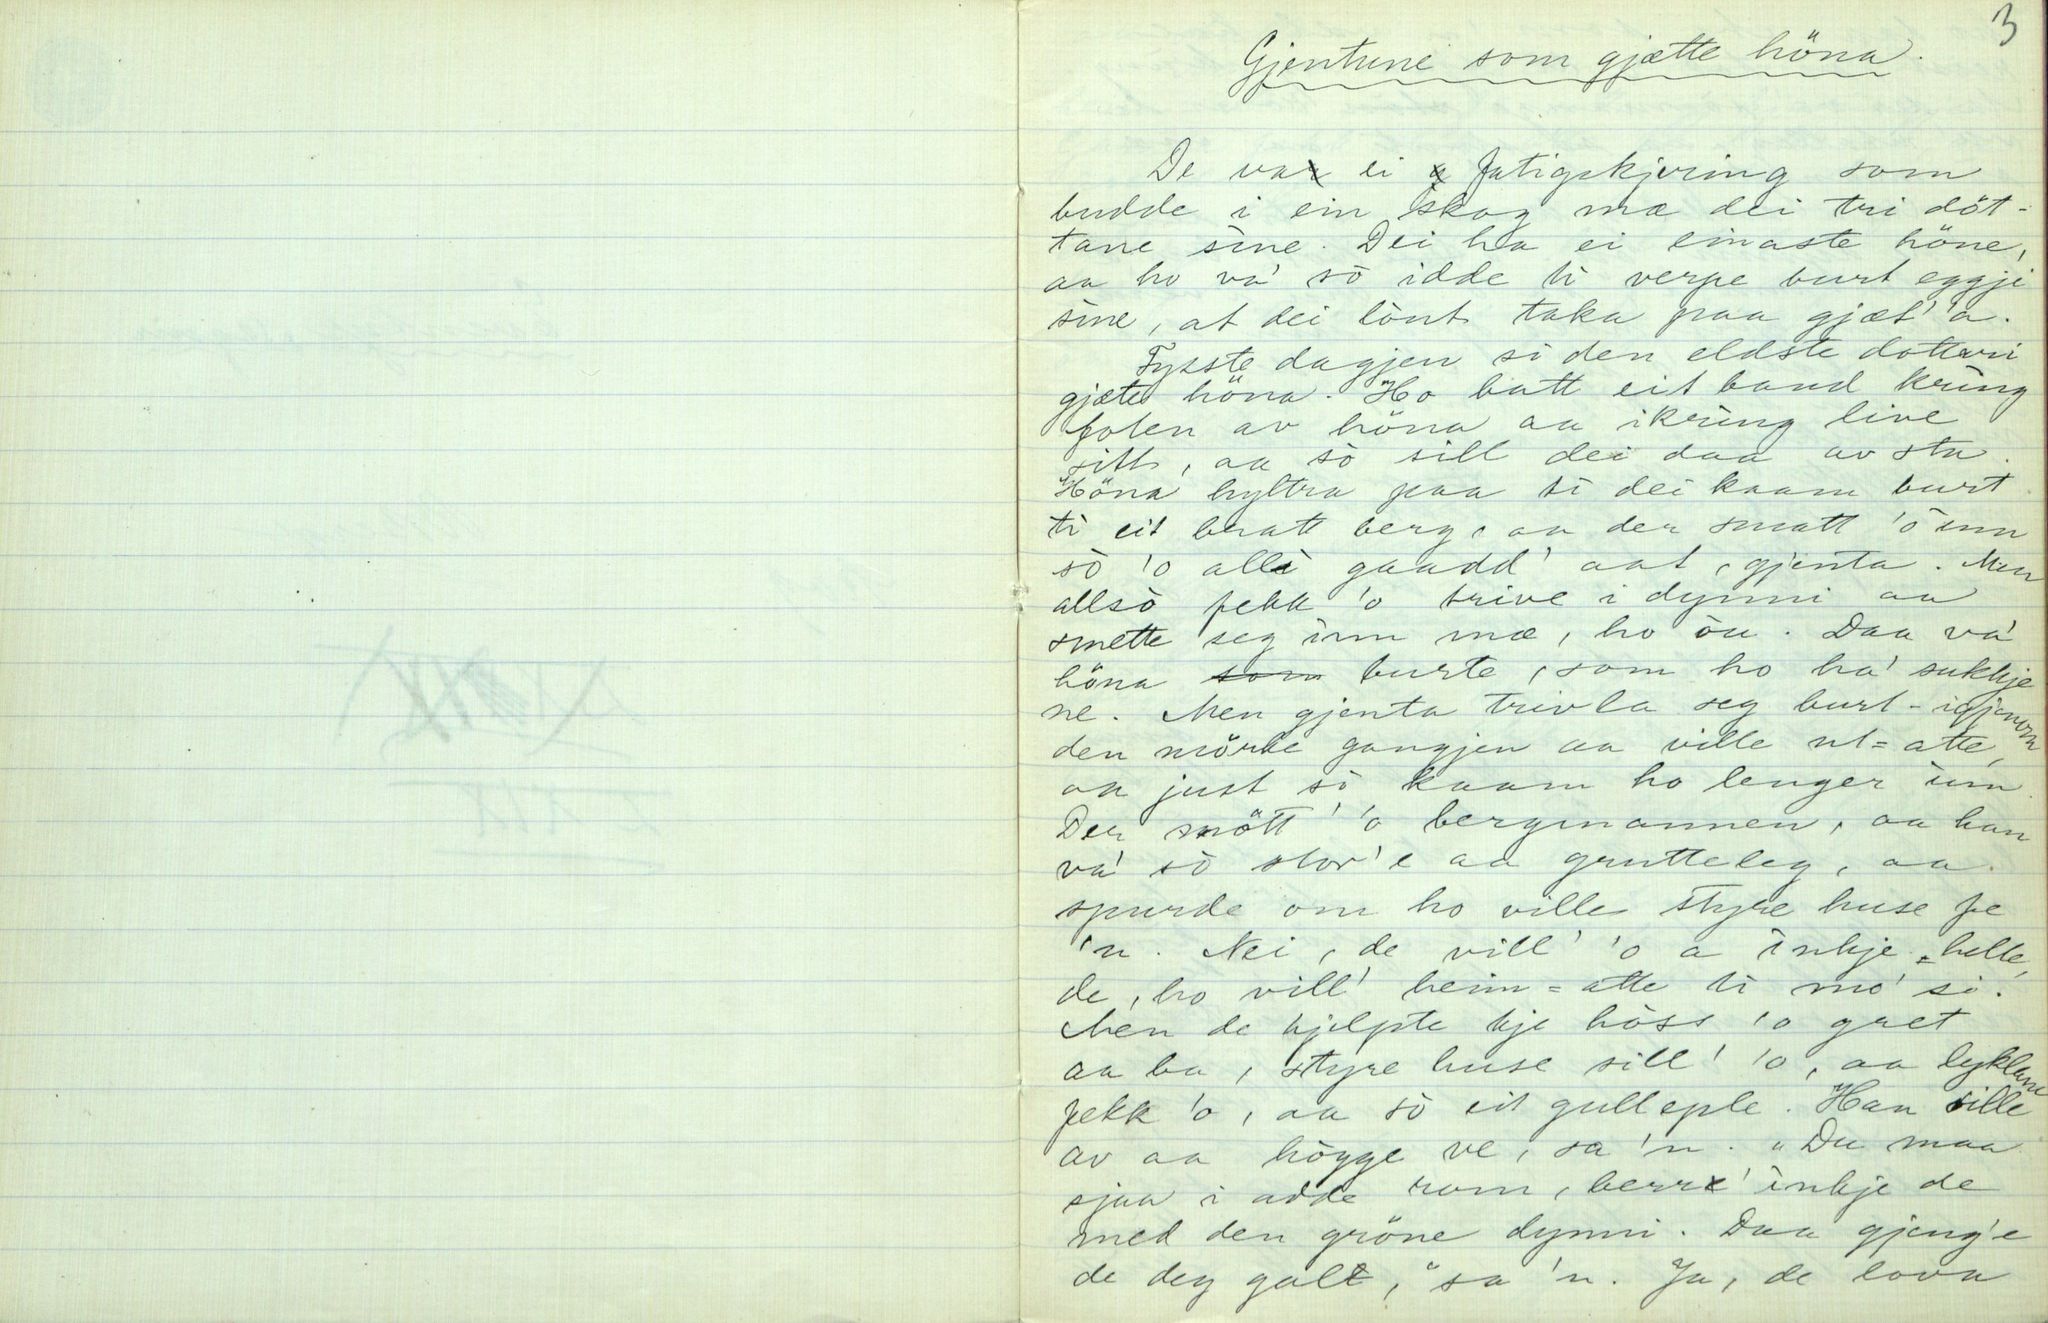 3
Gjentune som gjætte höna.
De va ei fatigskjering som
budde i ein skog mæ dei tri döt-
tane sine. Dei ha ei einaste höne,
aa ho va' sò idde ti verpe burt eggji
sine, at dei lönt taka paa gjæt' 'a.
Fysste dagjen si den eldste dotteri
gjæte höna. Ho batt eit band kring
foten av höna aa ikring live
sitt, aa sò sill dei daa av sta.
Höna hyltra paa ti dei kaam burt
ti eit bratt berg, aa der smatt 'o inn
sò 'o alli gaadd' aat, gjenta. Men
allsò fekk 'o trive i dynni aa
smette seg inn mæ, ho òu. Daa va'
höna burte, som ho ha' sukkje
ne. Men gjenta trivla seg burt-igjenom
den mörke gangjen aa ville ut=atte,
aa just sò kaam ho lenger inn.
Der mött' 'o bergmannen, aa han
va' sò stor'e aa grutteleg, aa
spurde om ho ville styre huse fe
'n. Nei, de vill' 'o a inkje helle,
de, ho vill' heim=atte ti mo' si.
Men de hjelpte kje hòss 'o gret
aa ba, styre huse sill' 'o, aa lyklane
fekk 'o, aa sò eit gulleple. Han sille
av aa högge ve, sa 'n. „Du maa
sjaa i adde rom, berre' inkje de
med den gröne dynni. Daa gjeng'e
de deg galt," sa 'n. Ja, de lova